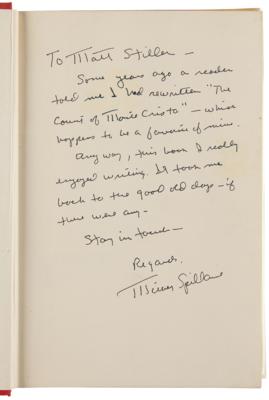 To Matt Stiller —
Some years ago a reader
told me I had rewritten "The
Count of Monte Cristo" — which
happens to be a favorite of mine.
Anyway, this book I really
enjoyed writing. It took me
back to the good old days — if
there were any —
Stay in touch —
Regards,
Mickey Spillane